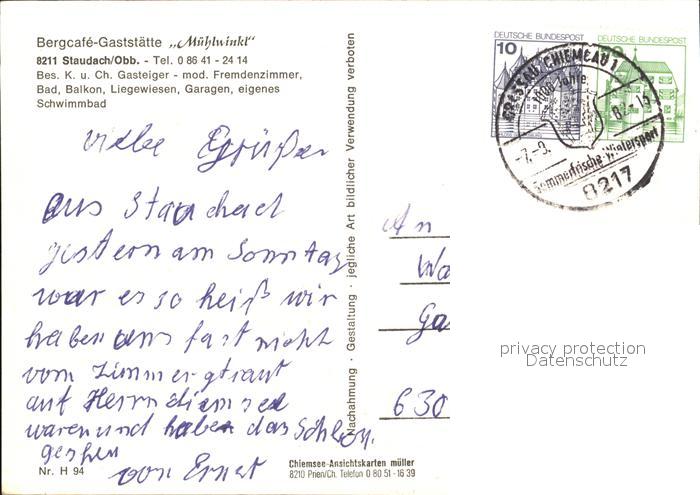 Bergcafé-Gaststätte „Mühlwinkl"
8211 Staudach/Obb. - Tel. 0 86 41 - 24 14
Bes. K. u. Ch. Gasteiger - mod. Fremdenzimmer,
Bad, Balkon, Liegewiesen, Garagen, eigenes
Schwimmbad
viele Grüße
aus Staudach
gestern am Sonntag
war es so heiß wir
haben uns fast nicht
vom Zimmer getraut
auf Herrn
waren und haben das Schloß
gesehen
von Ernst
Nr. H 94
Chiemsee-Ansichtskarten müller
8210 Prien/Ch. Telefon 0 80 51 - 16 39
Nachahmung · Gestaltung · jegliche Art bildlicher Verwendung verboten
DEUTSCHE BUNDESPOST
10
DEUTSCHE BUNDESPOST
GRASSAU, CHIEMGAU 1
Sommerfrische-Wintersport
8217
An
Wa
Ga
630
privacy protection
Datenschutz